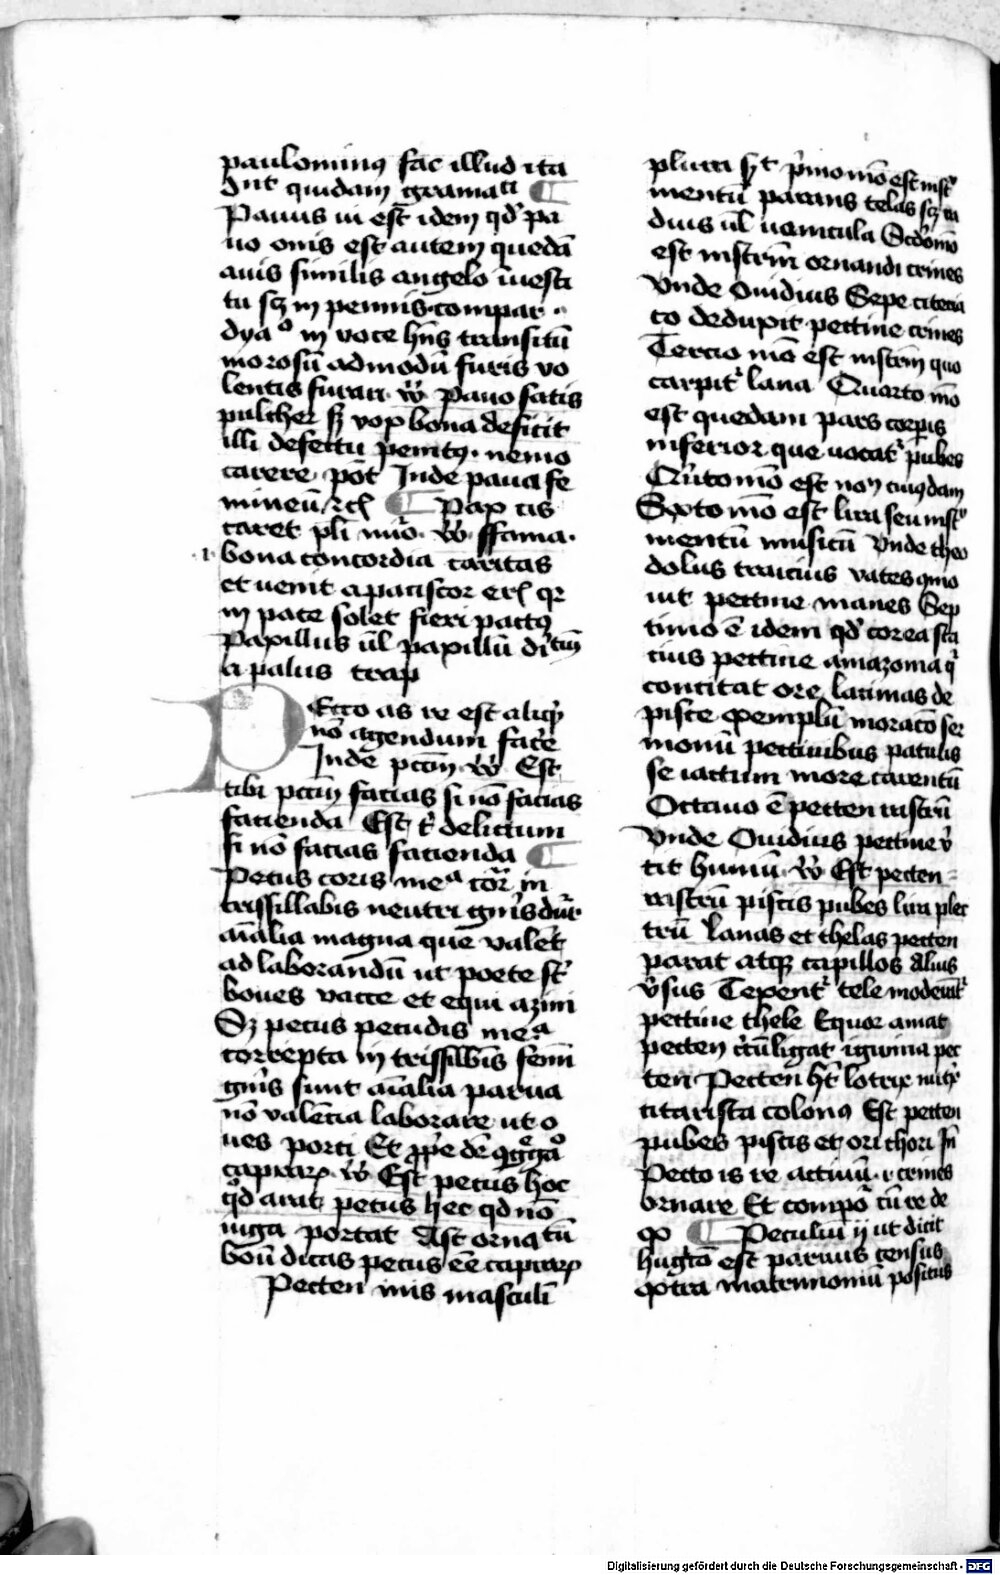 paulominus fac illud ita
dnt quidam gramati
Pauus ui est idem qd pa
uo onis est autem quedā
auis similis angelo īuesti
tu sz in pennis compar
dyao in voce hn̄s transitū
morosū admodū furis vo
lentis furari vȓ Pauo satis
pulcher sz vox bona deficit
illi defectu penitꝰ nemo
carere pōt Inde paua fe
mineū rch̄ Pax cis
caret pl̄i nūo vȓ ffama
.1. bona concordia caritas
et uenit a paciscor erꝭ qꝛ
in pace solet fieri pactꝰ
Papillus ul̄ papillū dictum
a palus trap
PEcco as re est aliqd
nō agendum fac̄e
Inde pctm̄ vȓ Est
tibi pctm̄ facias si nō facias
facienda Est tͥ delictum
si nō facias facienda
Pecus coris mea cor̄ in
trissillabis neutri gn̄is dūr
aīalia magna que valēt
ad laborandū ut poete sꝉ
boues vacce et equi azini
Sz pecus pecudis mea
correpta in trissill̄bis femī
gn̄is sunt aīalia parua
nō valētia laborare ut o
ues porci Et ꝓpe dē
caprarꝝ vȓ Est pecus hoc
qd arat pecus hec qd nō
iuga portat Ast ornatū
boū dicas pecus eē caprarꝝ
Pecten inis masculi
plura sꝉt Pͥmo mō est instͬ
mentū parans telas sz ra
dius ul̄ uenicula Scd̓o mō
est instrm̄ ornandi crines
Vnde Ouidius Sepe citeria
co deduxit pectine crines
Tercio mō est instrm̄ quo
carpitͬ lana Quarto mō
est quedam pars corꝑis
inferior que uocatͬ pubes
Qͥnto mō est nom̄ cuiꝰdam
Sexto mō est lira seu instͬ
mentū musicū Vnde theo
dolus traicius vates quo
uit pectine manes Sep
timo ē idem qd corea sca
cius pectine amazoma qͥ
concitat ore latimas de
piscē exemplū moracō ser
monū pectinibus patulis
se iactum more tarentū
Octauo ē pecten rastrū
Vnde Ouidius pectine v̓
tit humū vȓ Est pecten
rastrū piscis pubes lira plec
trū lanas et thelas pecten
parat atqꝫ capillos Alius
v̓sus Texentͬ tele moderātͬ
pectine thele Equor amat
pecten cͥnū ligat igumia pec
ten Pecten hꝫ lotrix
citarista colonꝰ Est pecten
pubes piscis et ori thori In̄
Pecto is re actiuū .i. crines
ornare Et compōr cū re de
ex Peculiū ij ut dicit
hugt̄o est paruus census
extra matrimoniū positus
Digitalisierung gefördert durch die Deutsche Forschungsgemeinschaft - DFG